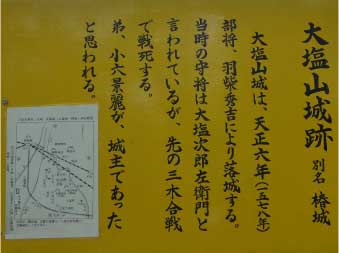 大塩山城跡 別名 椿城
大塩山城は、天正六年(一五七八年)
部将、羽柴秀吉により落城する。
当時の守将は大塩次郎左衛門と
言われているが、先の三木合戦
で戦死する。
弟、小六景麗が、城主であった
と思われる。